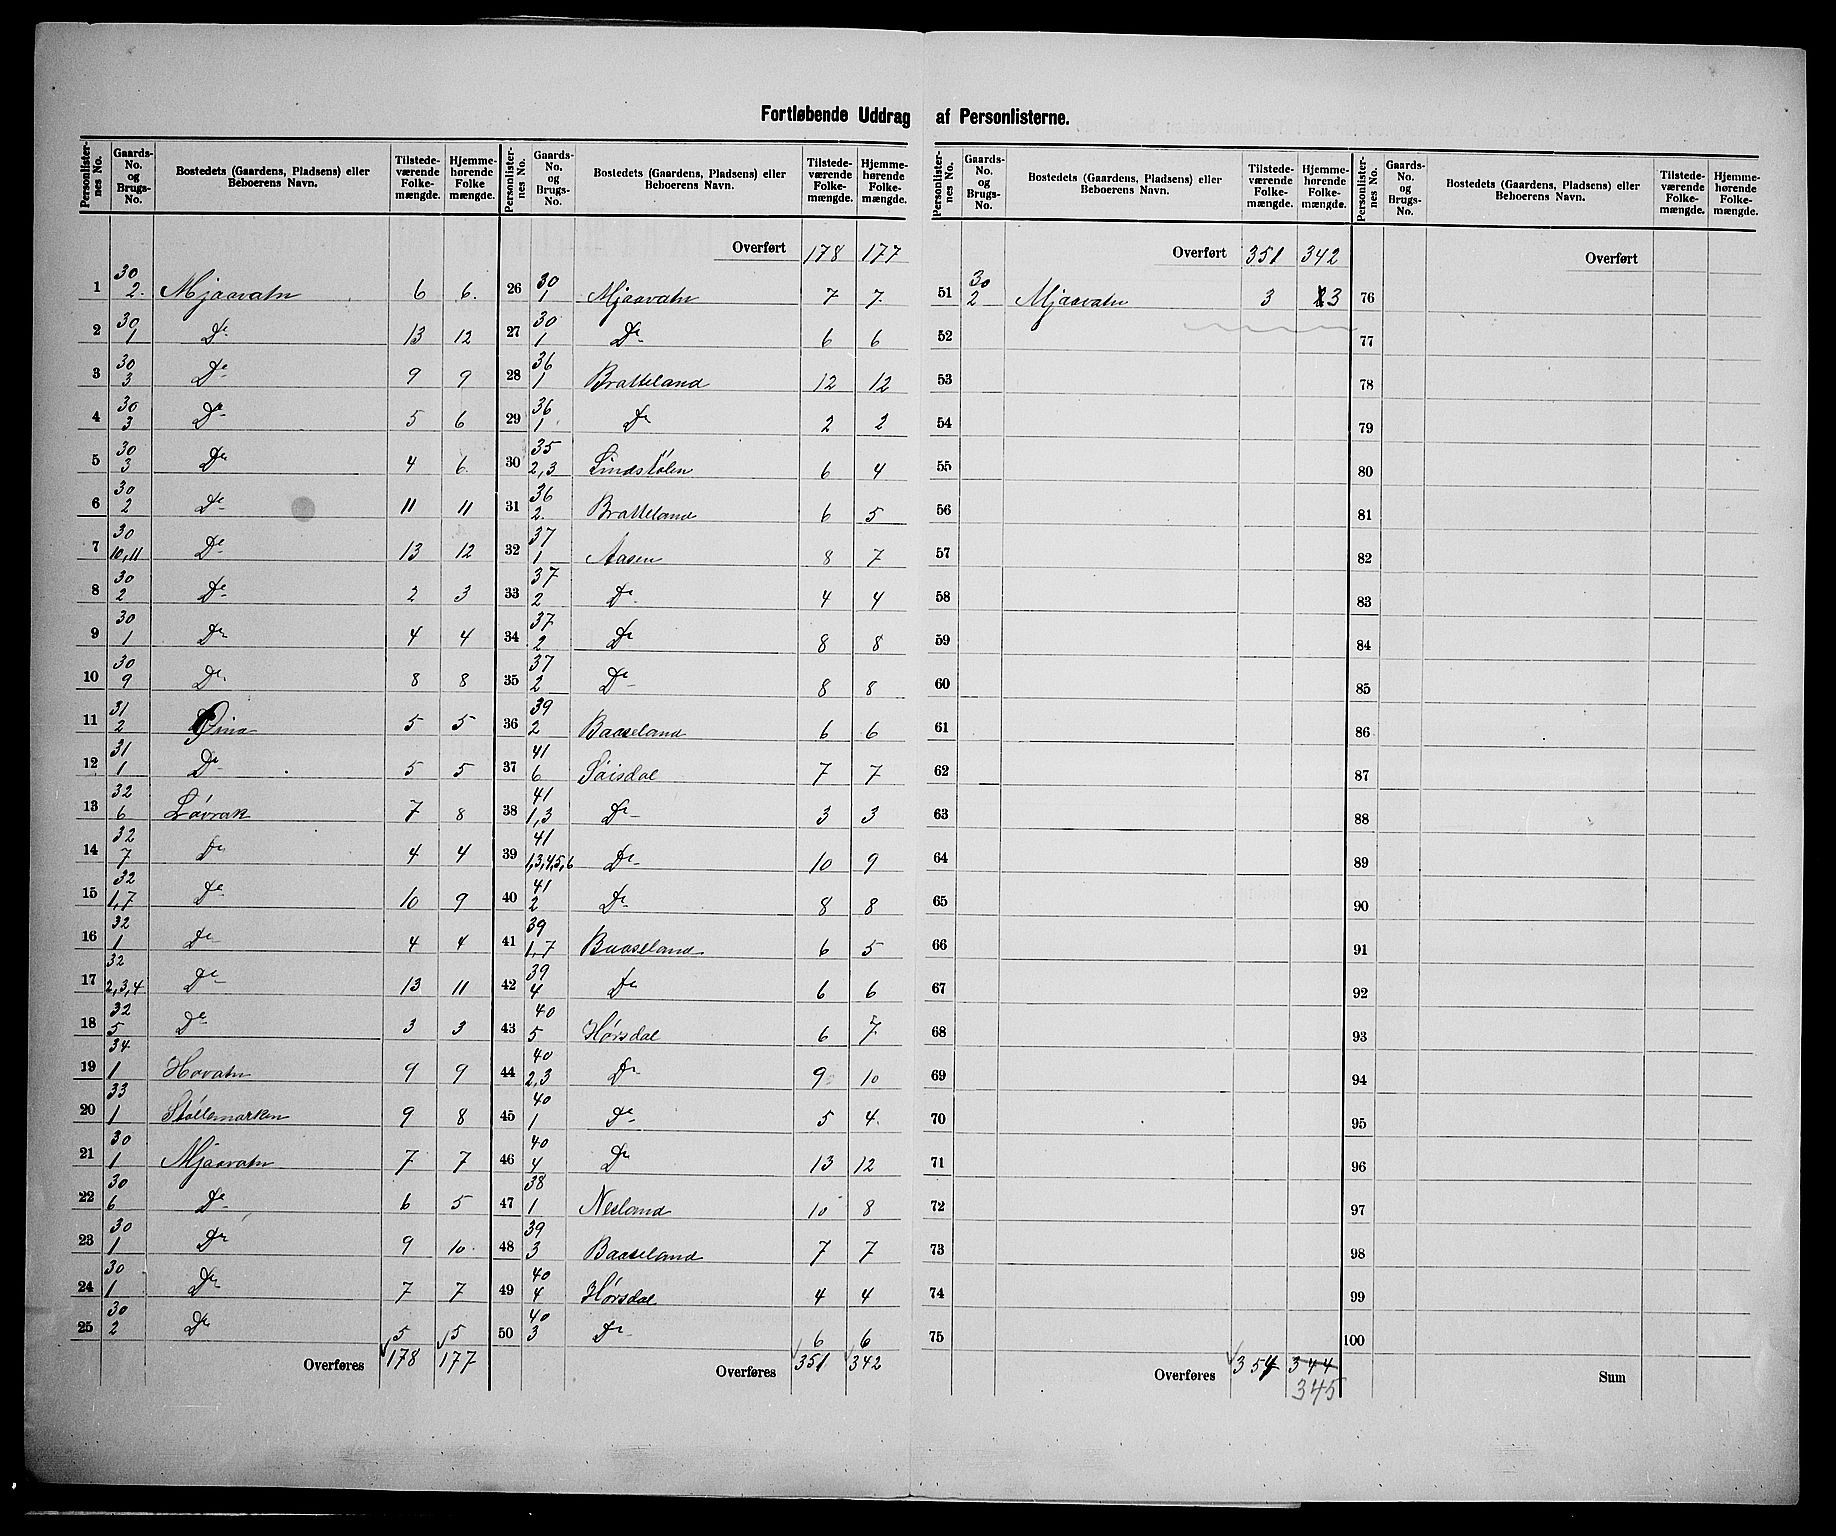 Fortløbende Uddrag af Personlisterne.
Personlisternes No. | Gaards-No. og Brugs-No. | Bostedets (Gaardens, Pladsens) eller Beboerens Navn. | Tilstedeværende Folkemængde. | Hjemmehørende Folkemængde.
1 30/2 Mjaavatn 6 6
2 30/1 Do 13 12
3 30/3 Do 9 9
4 30/3 Do 5 6
5 30/3 Do 4 6
6 30/2 Do 11 11
7 30/10,11 Do 13 12
8 30/2 Do 2 3
9 30/1 Do 4 4
10 30/9 Do 8 8
11 31/2 5 5
12 31/1 Do 5 5
13 32/6 Løvrak 7 8
14 32/7 Do 4 4
15 32/1,7 Do 10 9
16 32/1 Do 4 4
17 32/2,3,4 Do 13 11
18 32/5 Do 3 3
19 34/1 Hovatn 9 9
20 33/1 Støllemarken 9 8
21 30/1 Mjaavatn 7 7
22 30/6 Do 6 5
23 30/1 Do 9 10
24 30/1 Do 7 7
25 30/2 Do 5 5
Overføres 178 177
Personlisternes No. | Gaards-No. og Brugs-No. | Bostedets (Gaardens, Pladsens) eller Beboerens Navn. | Tilstedeværende Folkemængde. | Hjemmehørende Folkemængde.
Overført 178 177
26 30/1 Mjaavatn 7 7
27 30/1 Do 6 6
28 36/1 Bratteland 12 12
29 36/1 Do 2 2
30 35/2,3 Lindstølen 6 4
31 36/2 Bratteland 6 5
32 37/1 Aasen 8 7
33 37/2 Do 4 4
34 37/2 Do 8 8
35 37/2 Do 8 8
36 39/2 Baaseland 6 6
37 41/6 Søisdal 7 7
38 41/1,3 Do 3 3
39 41/1,3,4,5,6 Do 10 9
40 41/2 Do 8 8
41 39/1,7 Baaseland 6 5
42 39/4 Do 6 6
43 40/5 Hørsdal 6 7
44 40/2,3 Do 9 10
45 40/1 Do 5 4
46 40/4 Do 13 12
47 38/1 Nesland 10 8
48 39/3 Baaseland 7 7
49 40/4 Hørsdal 4 4
50 40/3 Do 6 6
Overføres 351 342
Personlisternes No. | Gaards-No. og Brugs-No. | Bostedets (Gaardens, Pladsens) eller Beboerens Navn. | Tilstedeværende Folkemængde. | Hjemmehørende Folkemængde.
Overført 351 342
51 30/2 Mjaavatn 3 3
52
53
54
55
56
57
58
59
60
61
62
63
64
65
66
67
68
69
70
71
72
73
74
75
Overføres 354 344
345
Personlisternes No. | Gaards-No. og Brugs-No. | Bostedets (Gaardens, Pladsens) eller Beboerens Navn. | Tilstedeværende Folkemængde. | Hjemmehørende Folkemængde.
Overført
76
77
78
79
80
81
82
83
84
85
86
87
88
89
90
91
92
93
94
95
96
97
98
99
100
Sum